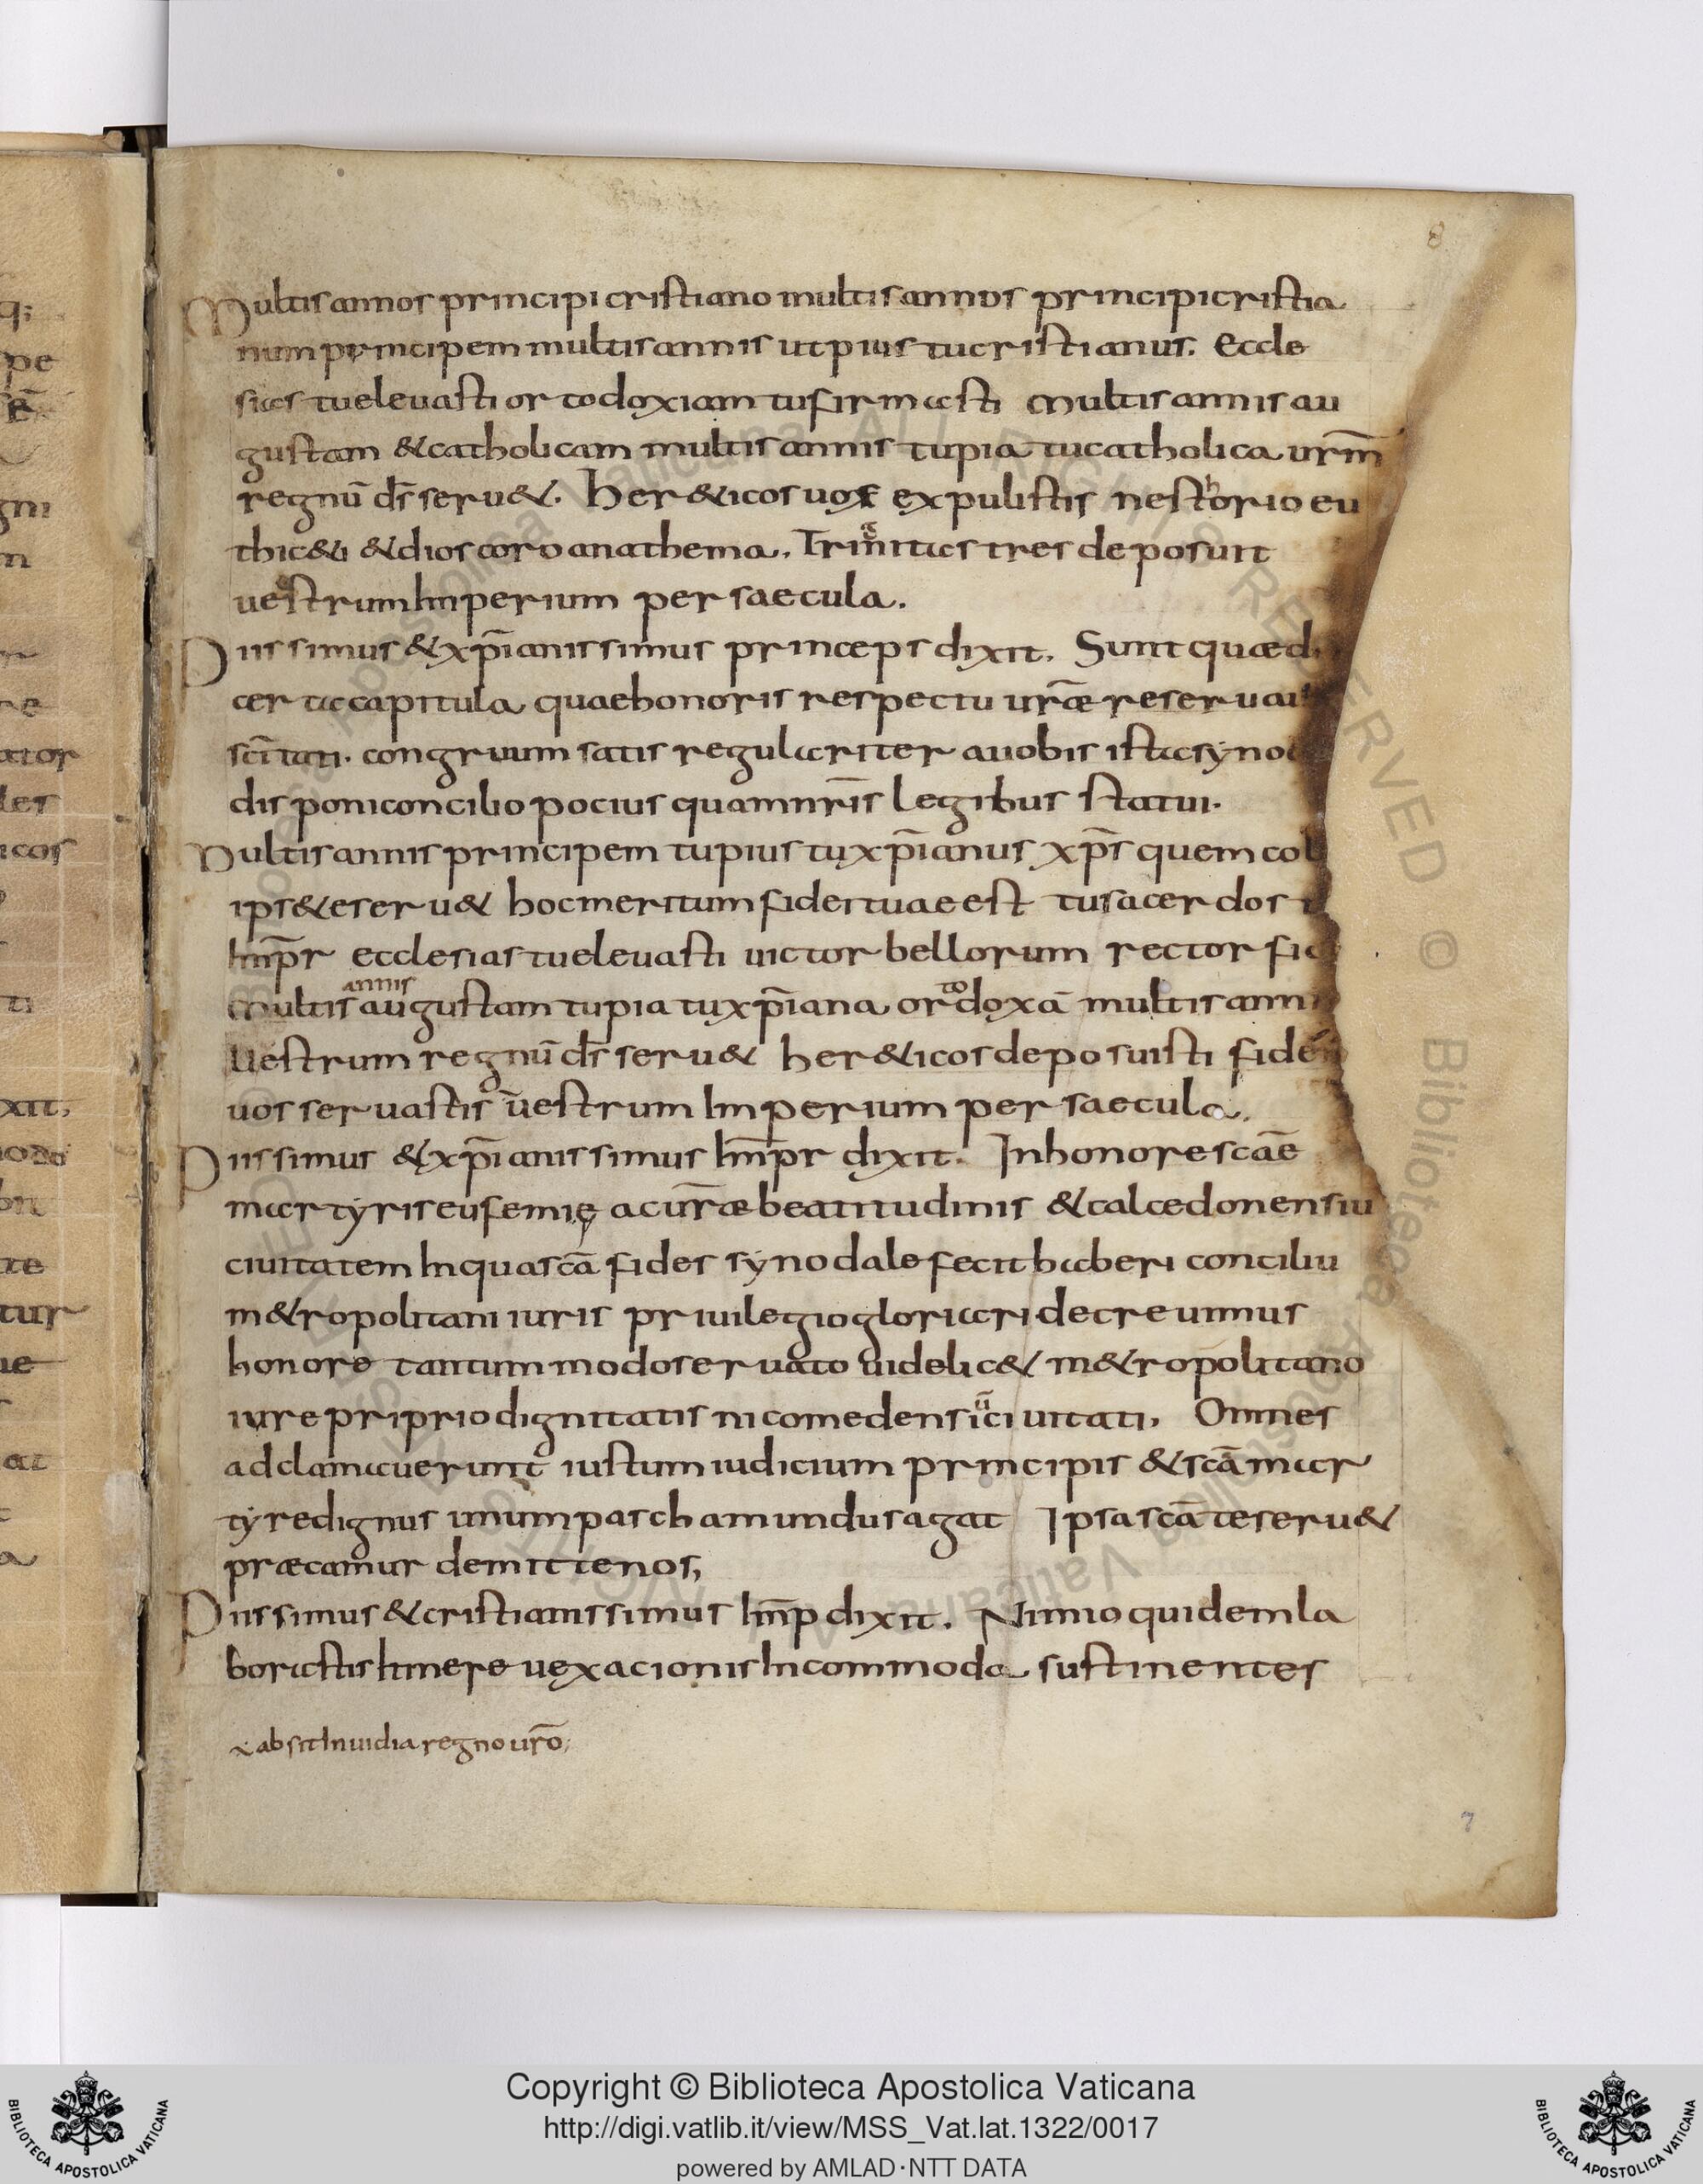 8
Multis annos principi cristiano multis annos principi cristia
num principem multis annis ut pius tu cristianus. Eccle
sias tu elevasti ortodoxiam tu firmasti multis annis au
gustam & catholicam multis annis tu pia tu catholica urm̄
regnū d̄s seru&. her&icos uos expulistis nesthorio eu
thic&i & dioscoro anathema. Trinitas tres deposuit
uestrum Imperium per saecula.
Piissimus & xp̄ianissimus princeps dixit. Sunt quæd
certa capitula quae honoris respectu ur̄æ reserua
sc̄itati. congruum satis regulariter a uobis ista syno
disponi concilio pocius quam nr̄is legibus statui.
Multis annis principem tu pius tu xp̄ianus xp̄s quem col
ips& e seru& hoc meritum fidei tuae est tu sacerdos
Imp̄r ecclesias tu eleuasti uictor bellorum rector fid
annis
multis augustam tu pia tu xp̄iana ortodoxā multis ann
Uestrum regnū d̄s seru& her&icos deposuisti fidē
uos seruastis uestrum Imperium per saecula.
Piissimus & xp̄ianissimus Imp̄r dixit. In honore sc̄ae
martyris eufemię ac ur̄æ beatitudinis & calcedonensiu
ciuitatem In qua sc̄a fides synodale fecit haberi conciliu
m&ropolitani iuris priuilegio gloriari decreuimus
honore tantum modo seruato uidelic& m&ropolitano
iure priprio dignitatis nicomedensiū ciuitati. Omnes
adclamauerunt iustum iudicium principis & sc̄a mar
tyre dignus unum pascha mundus agat Ipsa sc̄a te seru&
præcamur demitte nos,
Piissimus & cristianissimus Imp̄ dixit. Nimio quidem la
borastis Itinere uexacionis Incommoda sustinentes
absit Inuidia regno ur̄o;
7
q;
pe
gni
n
re
ator
les
icos
ti
xit,
te
tur
ue
at
a
Copyright © Biblioteca Apostolica Vaticana
http://digi.vatlib.it/view/MSS_Vat.lat.1322/0017
powered by AMLAD·NTT DATA
BIBLIOTECA APOSTOLICA VATICANA
BIBLIOTECA APOSTOLICA VATICANA